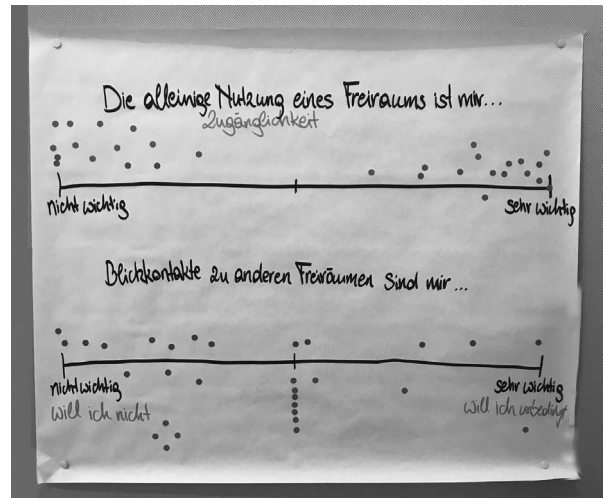 Die alleinige Nutzung eines Freiraums ist mir...
Zugänglichkeit
nicht wichtig
sehr wichtig
Blickkontakte zu anderen Freiräumen sind mir...
nicht wichtig
sehr wichtig
will ich nicht
will ich unbedingt